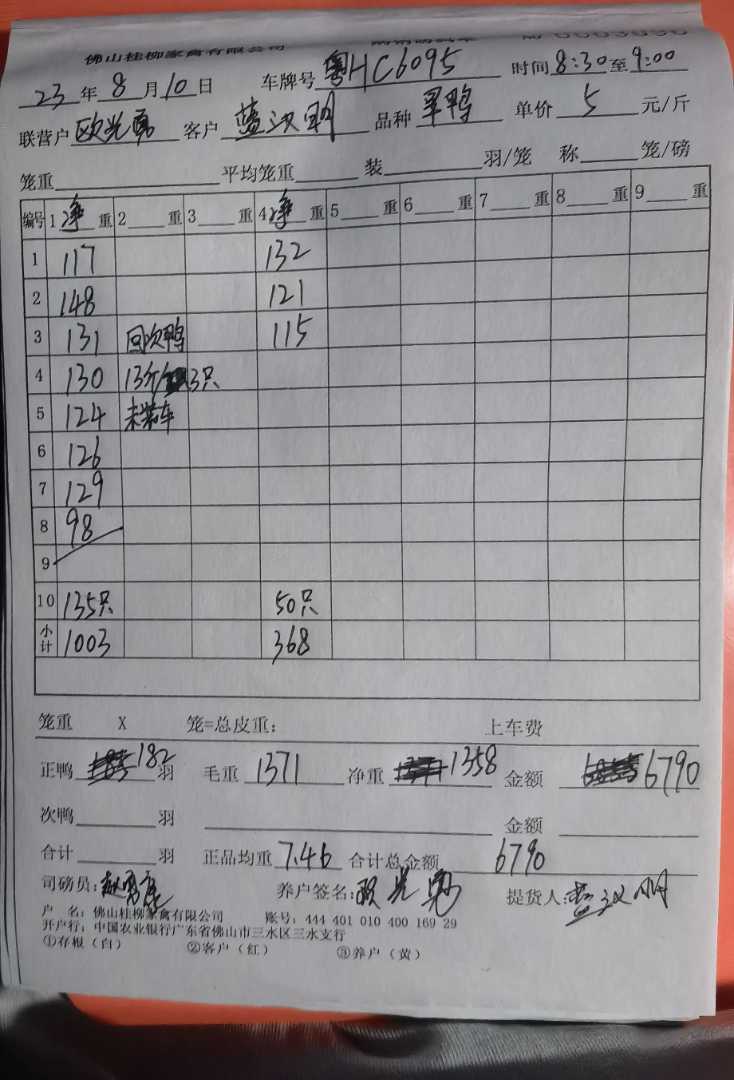 佛山桂柳家禽有限公司
23年8月10日 车牌号粤HC6095 时间8:30至9:00
联营户欧光勇 客户蓝汉明 品种 鸭 单价5元/斤
笼重 平均笼重 装 羽/笼 称 笼/磅
编号 1净重 2 重 3 重 4净重 5 重 6 重 7 重 8 重 9 重
1 117 132
2 148 121
3 131 回次鸭 115
4 130 13斤/3只
5 124 未装车
6 126
7 129
8 98
9
10 135只 50只
小计 1003 368
笼重 X 笼=总皮重: 上车费
正鸭182羽 毛重1371 净重1358 金额6790
次鸭 羽 金额
合计 羽 正品均重7.46 合计总金额6790
司磅员: 养户签名:欧光勇 提货人:蓝汉明
户 名: 佛山桂柳家禽有限公司 账号: 444 401 010 400 169 29
开户行: 中国农业银行广东省佛山市三水区三水支行
①存根(白) ②客户(红) ③养户(黄)